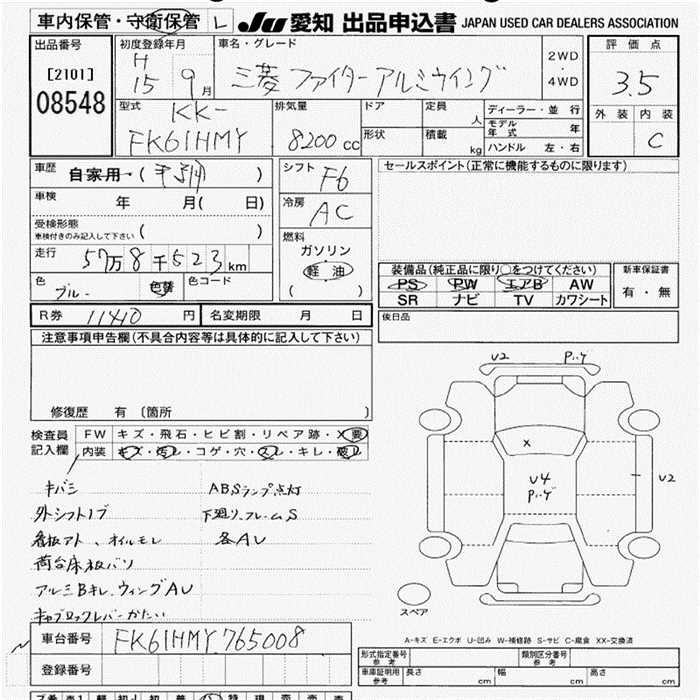 車内保管・守衛保管 L JU 愛知 出品申込書 JAPAN USED CAR DEALERS ASSOCIATION
出品番号 初度登録年月 車名・グレード 評価点
[2101] H 15 9月 三菱 ファイターアルミウイング 2WD・4WD 3.5
08548
型式 KK- 排気量 ドア 定員 人 ディーラー・並行 外装 内装
モデル年式 年
FK61HMY 8200cc 形状 積載 kg ハンドル 左・右 C
車歴 自家用・( ) シフト F6 セールスポイント(正常に機能するものに限ります)
車検 年 月( 日) 冷房 AC
受検形態
車検付きのみ記入して下さい ( ) 燃料
走行 57万8千523km ガソリン
軽油
( )
装備品(純正品に限り○をつけてください) 新車保証書
色 ブルー 色替 色コード PS PW エアB AW 有・無
SR ナビ TV カワシート
R券 11410円 名変期限 月 日 後日品
注意事項申告欄(不具合内容等は具体的に記入して下さい)
修復歴 有 〔箇所 〕
検査員記入欄 FW キズ・飛石・ヒビ割・リペア跡・X要
内装 キズ・汚レ・コゲ・穴・スレ・キレ・破レ
キバミ ABSランプ点灯
外シフトノブ 下廻り、フレームS
看板アト、オイルモレ 各AU
荷台床板バツ
アルミBキレ、ウィングAU
キャブロックレバーかたい
U2
X
U4
U2
スペア
A-キズ E-エクボ U-凹み W-補修跡 S-サビ C-腐食 XX-交換済
車台番号 FK61HMY 765008
登録番号
形式指定番号 参考 類別区分番号 参考
車庫証明用 参考 長さ 幅 高さ
cm cm cm